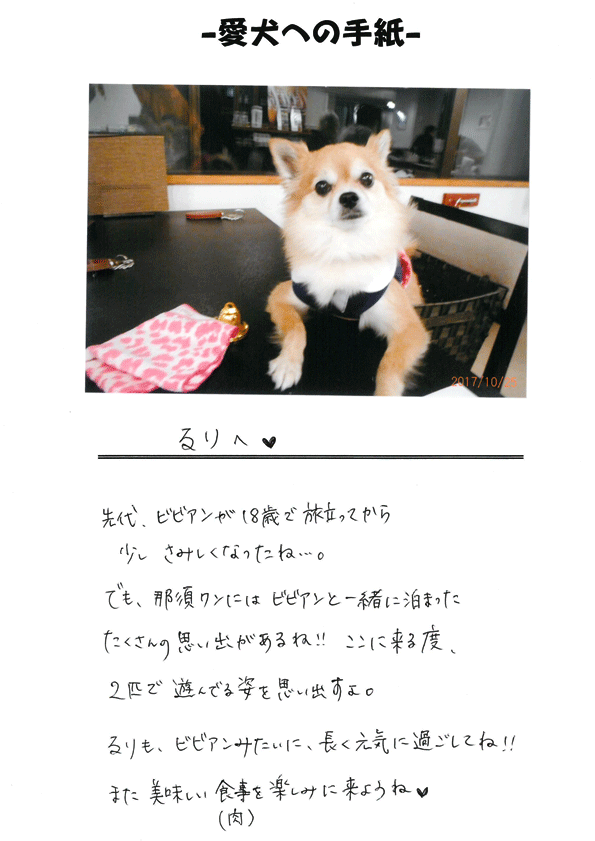 -愛犬への手紙-
2017/10/
るりへ♥
先代、ビビアンが18歳で旅立ってから
少し さみしくなったね…。
でも、那須ワンにはビビアンと一緒に泊まった
たくさんの思い出があるね!! ここに来る度、
2匹で遊んでる姿を思い出すよ。
るりも、ビビアンみたいに、長く元気に過ごしてね!!
また美味しい食事を楽しみに来ようね♥
(肉)